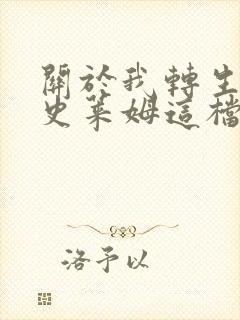 關於我轉生
史萊姆這檔
洛予以